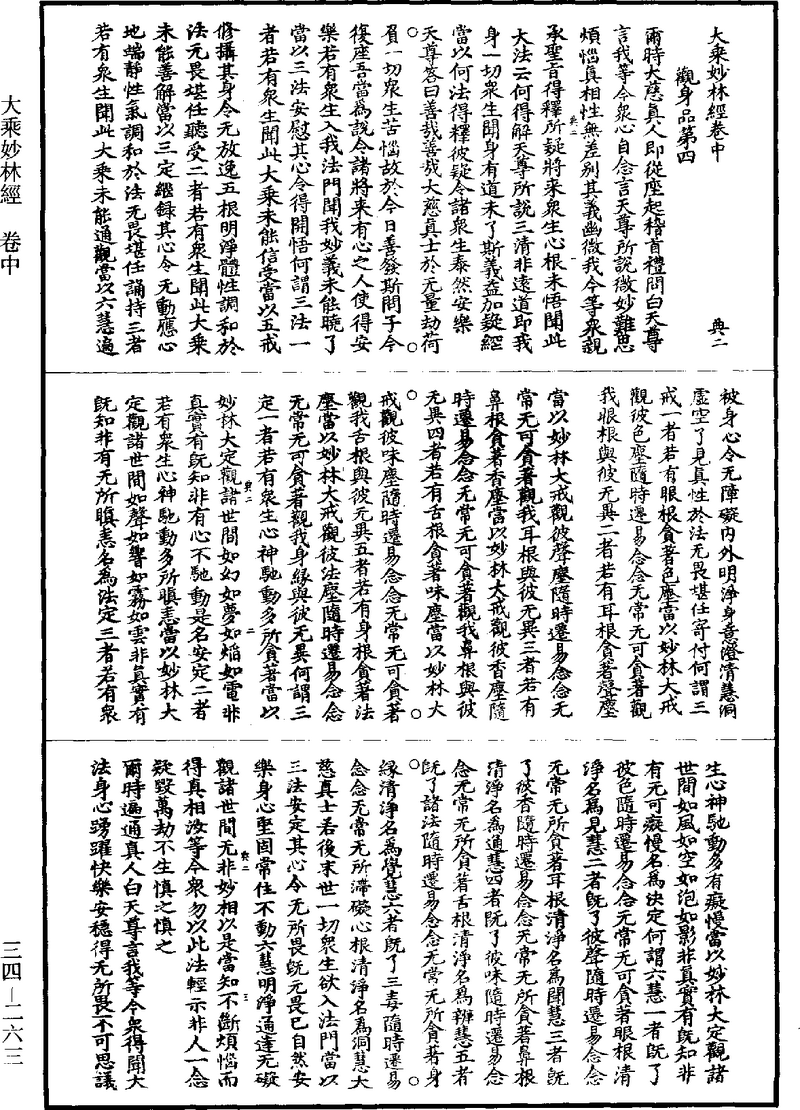 大乘妙林經卷中
觀身品第四
典二
爾時大應真人即從座起稽首禮問白天尊
言我等今衆心自念言天尊所說微妙難思
煩惱真相性無差別其義幽微我今等衆親
承聖旨得釋所疑將来衆生心根未悟聞此
大法云何得解天尊所說三清非遠道即我
身一切衆生聞身有道未了斯義益加疑經
當以何法得釋彼疑令諸衆生泰然安樂
天尊荅曰善哉善哉大慈真士於无量劫荷
負一切衆生苦惱故於今日善發斯問子今
復座吾當爲說令諸將来有心之人使得安
樂若有衆生入我法門聞我妙義未能曉了
當以三法安慰其心令得開悟何謂三法一
者若有衆生聞此大乘未能信受當以五戒
修攝其身令无放逸五根明淨體性調和於
法无畏堪任聽受二者若有衆生聞此大乘
未能善解當以三定繼録其心令无動應心
地端静性氣調和於法无畏堪任誦持三者
若有衆生聞此大乘未能通觀當以六慧遍
被身心令无障礙内外明淨身意澄清慧洞
虚空了見真性於法无畏堪任寄付何謂三
戒一者若有眼根貪著色塵當以妙林大戒
觀彼色塵隨時遷易念念无常无可貪著觀
我眼根與彼无異二者若有耳根貪著聲塵
當以妙林大戒觀彼聲塵隨時遷易念念无
常无可貪著觀我耳根與彼无異三者若有
鼻根貪著香塵當以妙林大戒觀彼香塵隨
時遷易念念无常无可貪著觀我鼻根與彼
无異四者若有舌根貪著味塵當以妙林大
戒觀彼味塵隨時遷易念念无常无可貪著
觀我舌根與彼无異五者若有身根貪著法
塵當以妙林大戒觀彼法塵隨時遷易念念
无常无可貪著觀我身緣與彼无異何謂三
定一者若有衆生心神馳動多所貪著當以
妙林大定觀諸世間如幻如夢如焰如電非
真實有既知非有心不馳動是名安定二者
若有衆生心神馳動多所瞋恚當以妙林大
定觀諸世間如聲如響如霧如雲非真實有
既知非有无所瞋恚名爲法定三者若有衆
生心神馳動多有癡慢當以妙林大定觀諸
世間如風如空如泡如影非真實有既知非
有无可癡慢名爲決定何謂六慧一者既了
彼色隨時遷易念念无常无可貪著眼根清
淨名爲見慧二者既了彼聲隨時遷易念念
无常无所貪著耳根清淨名爲聞慧三者既
了彼香隨時遷易念念无常无所貪著鼻根
清淨名爲通慧四者既了彼味隨時遷易念
念无常无所貪著舌根清淨名爲辨慧五者
既了諸法隨時遷易念念无常无所貪著身
緣清淨名爲覺慧六者既了三毒隨時遷易
念念无常无所滞礙心根清淨名爲洞慧大
慈真士若後末世一切衆生欲入法門當以
三法安定其心令无所畏既无畏已自然安
樂身心堅固常住不動六慧明淨通達无礙
觀諸世間无非妙相以是當知不斷煩惱而
得真相汝等今衆勿以此法輕示非人一念
疑毀萬劫不生慎之慎之
爾時遍通真人白天尊言我等今衆得聞大
法身心踴躍快樂安穩得无所畏不可思議
大乘妙林經　卷中
三四—二六三